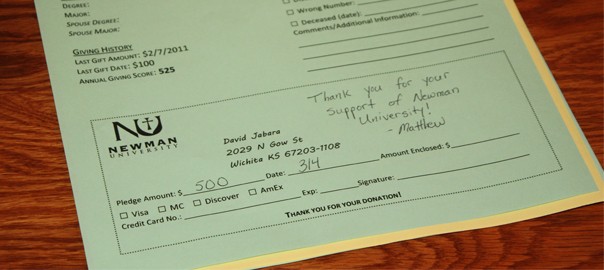 DEGREE:
MAJOR:
SPOUSE DEGREE:
SPOUSE MAJOR:
GIVING HISTORY
LAST GIFT AMOUNT: $2/7/2011
LAST GIFT DATE: $100
ANNUAL GIVING SCORE: 525
☐ Wrong Number:
☐ Deceased (date):
Comments/Additional Information:
NU
NEWMAN
UNIVERSITY
David Jabara
2029 N Gow St
Wichita KS 67203-1108
Thank you for your
support of Newman
University!
- Matthew
Pledge Amount: $ 500 Date: 3/4 Amount Enclosed: $
☐ Visa ☐ MC ☐ Discover ☐ AmEx
Credit Card No.: Exp: Signature:
THANK YOU FOR YOUR DONATION!